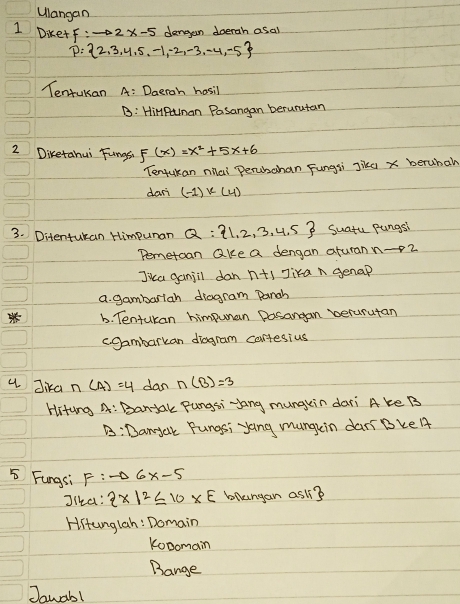 Ulangan
1 Diket f : → 2x-5 dengan daerah asal
D: {2,3,4,5,-1,-2,-3,-4,-5}
Tentukan A: Daerah hasil
B: Himpunan Pasangan berurutan
2 Diketahui Fungsi F (x) = x² + 5x + 6
Tentukan nilai Perubahan Fungsi Jika x berubah
dari (-1) k (4)
3. Ditentukan Himpunan Q : {1,2,3,4,5} Suatu Fungsi
Pemetaan Q ke Q dengan aturan n → 2
Jika ganjil dan n+1 Jika n genap
a. gambarlah diagram Panah
* b. Tentukan himpunan Pasangan berurutan
c gambarkan diagram cartesius
4 Jika n (A) = 4 dan n (B) = 3
Hitung A: Banyak Fungsi yang mungkin dari A ke B
B: Banyak Fungsi yang mungkin dari B ke A
5 Fungsi F : → 6x-5
Jika : {x | 2 ≤ 10 x E bilangan asli}
Hitunglah : Domain
Kodomain
Range
Jawab!